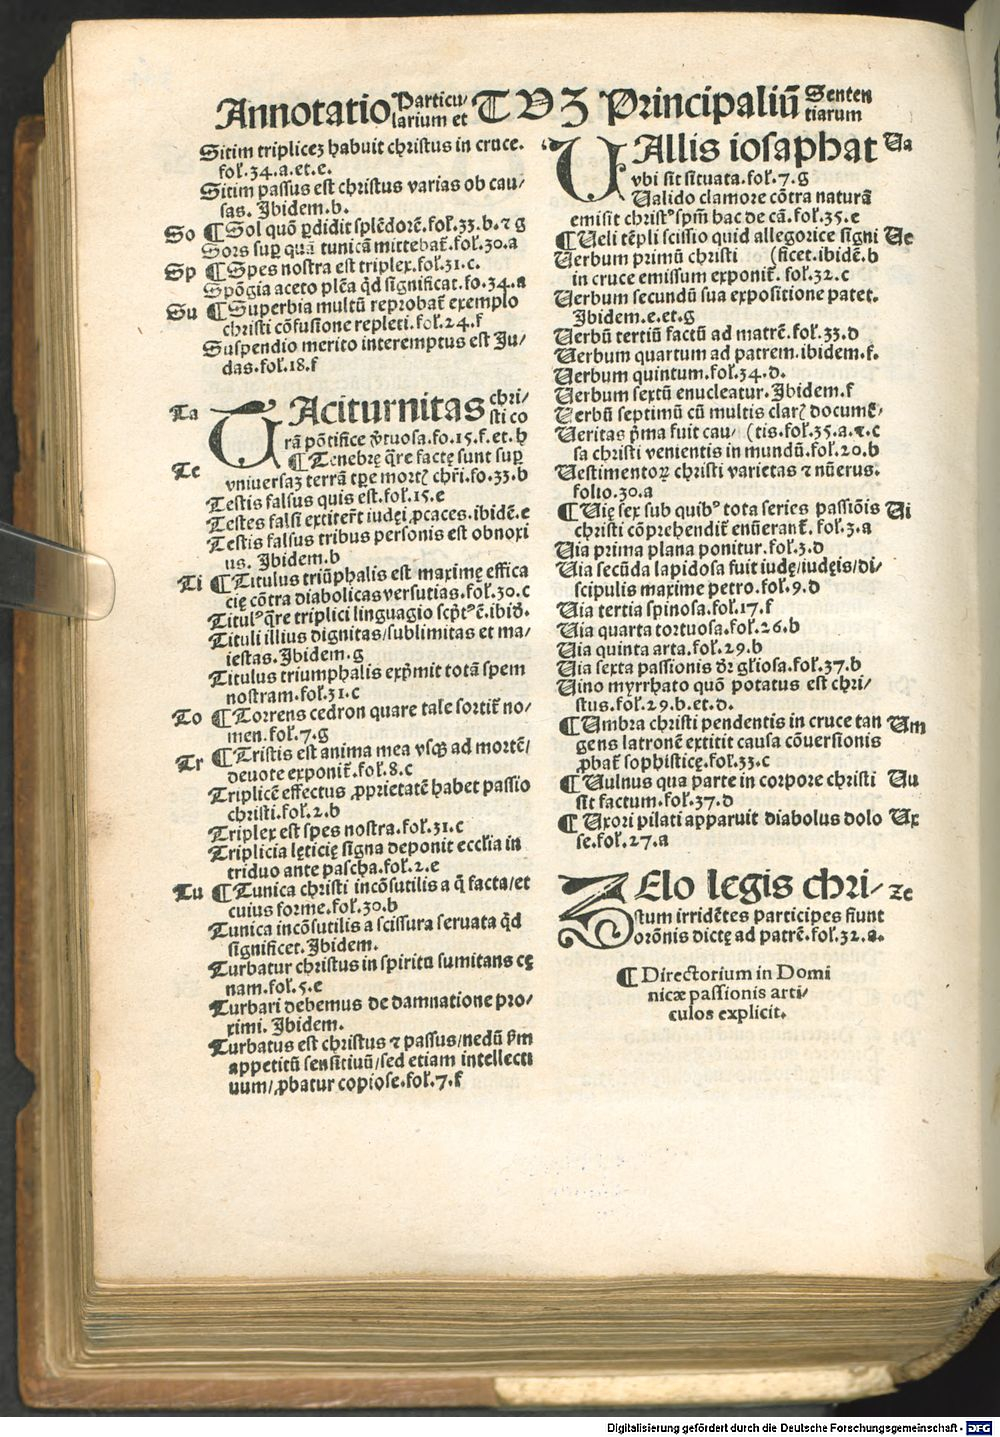 Annotatio Particu/
larium et TVZ Principaliū Senten
tiarum
Sitim triplicez habuit christus in cruce.
fol̄.34.a.et.e.
Sitim passus est christus varias ob cau/
sas. Ibidem.b.
So ¶Sol quō ꝑdidit splēdorē.fol̄.33.b.⁊ g
Sors suꝑ quā tunicā mittebat̄.fol̄.30.a
Sp ¶Spes nostra est triplex.fol̄.31.c.
Spōgia aceto plēa qd̄ significat.fo.34.a
Su ¶Superbia multū reprobat̄ exemplo
christi cōfusione repleti.fol.24.f
Suspendio merito interemptus est Ju/
das.fol̄.18.f
Ta TAciturnitas chri/
sti co
rā pōtifice v̄tuosa.fo.15.f.et.h
Te ¶Tenebrę q̄re factę sunt suꝑ
vniuersaz terrā tꝑe mortꝭ chr̄i.fo.33.b
Testis falsus quis est.fol̄.15.e
Testes falsi extiter̄t iudęi ꝓcaces.ibidē.e
Testis falsus tribus personis est obnoxi
us. Ibidem.b
Ti ¶Titulus triūphalis est maximę effica
cię cōtra diabolicas versutias.fol̄.30.c
Titulꝰ q̄re triplici linguagio scp̄tꝰ ē.ibid̄.
Tituli illius dignitas/sublimitas et ma/
iestas.Ibidem.g
Titulus triumphalis exp̄mit totā spem
nostram.fol̄.31.c
To ¶Torrens cedron quare tale sortit̄ no/
men.fol̄.7.g
Tr ¶Tristis est anima mea vsqꝫ ad mortē/
deuote exponit̄.fol̄.8.c
Triplicē effectus ꝓprietatē habet passio
christi.fol̄.2.b
Triplex est spes nostra.fol̄.31.c
Triplicia lęticię signa deponit ecclīa in
triduo ante pascha.fol̄.2.e
Tu ¶Tunica christi incōsutilis a q̄ facta/et
cuius forme.fol̄.30.b
Tunica incōsutilis a scissura seruata qd̄
significet.Ibidem.
Turbatur christus in spiritu sumitans cę
nam.fol̄.5.e
Turbari debemus de damnatione pro/
ximi. Ibidem.
Turbatus est christus ⁊ passus/nedū ẜm
appetitū sensitiuū/sed etiam intellecti
uum/ꝓbatur copiose.fol̄.7.f
VAllis iosaphat Va
vbi sit situata.fol̄.7.g
Valido clamore cōtra naturā
emisit christꝰ spm̄ hac de cā.fol̄.35.e
¶Veli tēpli scissio quid allegorice signi Ve
Verbum primū christi (ficet.ibidē.b
in cruce emissum exponit̄. fol̄.32.c
Verbum secundū sua expositione patet.
Ibidem.e.et.g
Verbū tertiū factū ad matrē.fol̄.33.d
Verbum quartum ad patrem.ibidem.f.
Verbum quintum.fol̄.34.d.
Verbum sextū enucleatur.Ibidem.f
Verbū septimū cū multis clarꝭ documē/
Veritas p̄ma fuit cau/ (tis.fol̄.35.a.⁊.c
sa christi venientis in mundū.fol̄.20.b
Vestimentoꝝ christi varietas ⁊ nūerus.
folio.30.a
¶Vię sex sub quibꝰ tota series passiōis Vi
christi cōprehendit̄ enūerant̄. fol̄.3.a
Via prima plana ponitur.fol̄.3.d
Via secūda lapidosa fuit iudę/iudęis/di/
scipulis maxime petro.fol̄.9.d
Via tertia spinosa.fol̄.17.f
Via quarta tortuosa.fol̄.26.b
Via quinta arta.fol̄.29.b
Via sexta passionis dr̄ gl̄iosa.fol̄.37.b
Vino myrrhato quō potatus est chri/
stus.fol̄.29.b.et.d.
¶Vmbra christi pendentis in cruce tan Vm
gens latronē extitit causa cōuersionis
ꝓbat̄ sophisticę.fol̄.33.c
¶Vulnus qua parte in corpore christi Vu
sit factum.fol̄.37.d
¶Vxori pilati apparuit diabolus dolo Vx
se.fol̄.27.a
ZElo legis chri/ Ze
stum irridētes participes fiunt
orōnis dictę ad patrē.fol̄.32.a.
¶Directorium in Domi
nicæ passionis arti/
culos explicit.
Digitalisierung gefördert durch die Deutsche Forschungsgemeinschaft - DFG